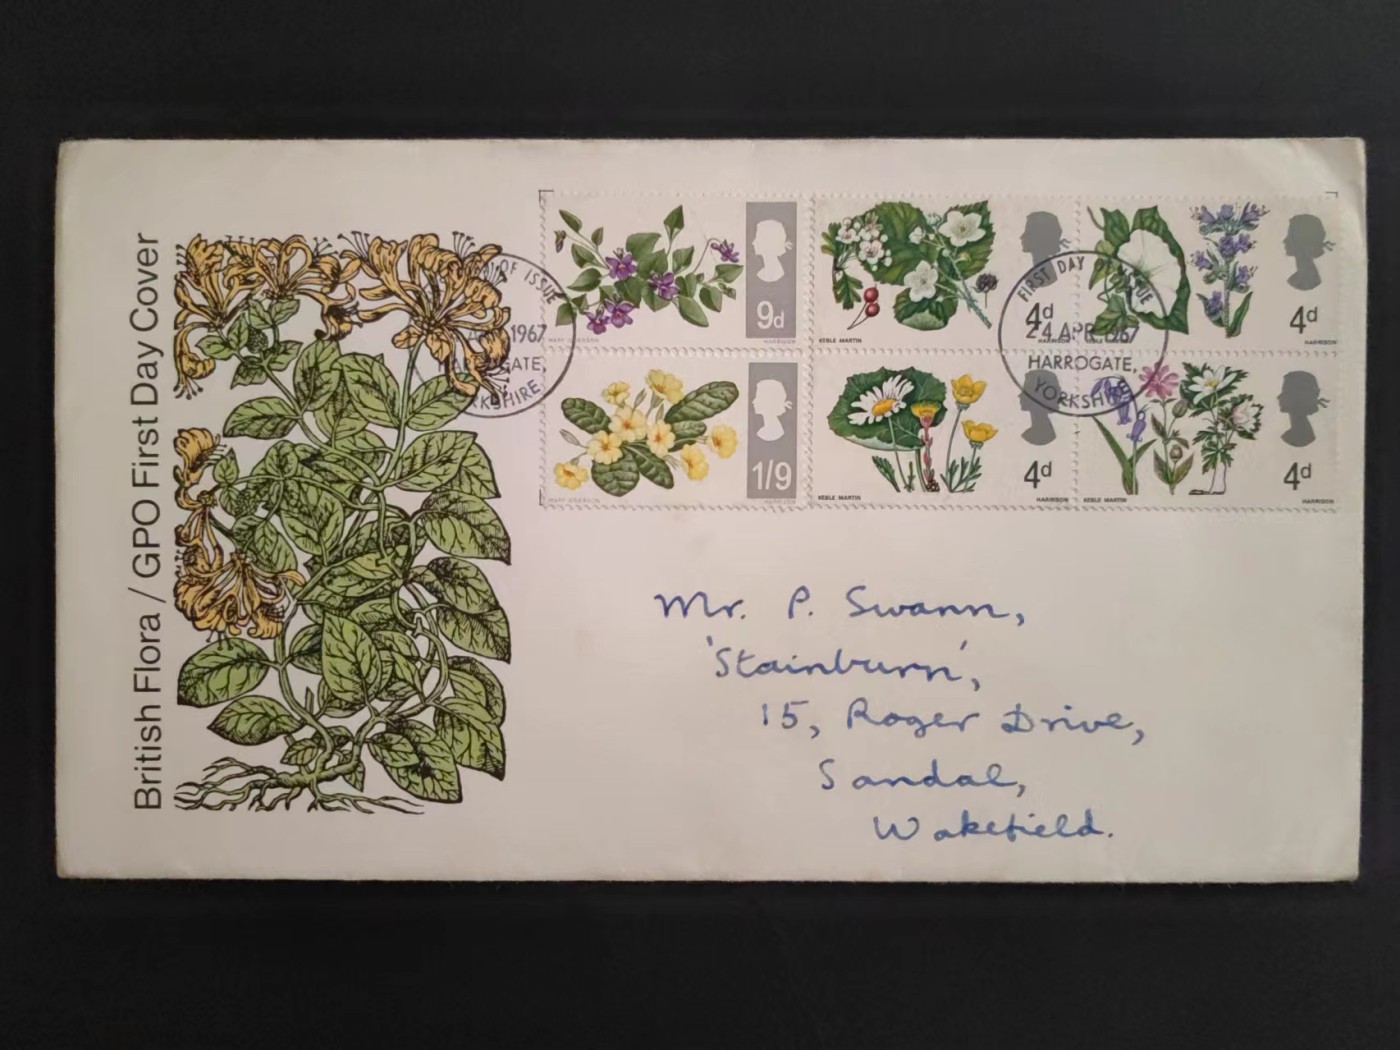 British Flora / GPO First Day Cover
OF ISSUE
1967
GATE,
RKSHIRE
9d
HARRISON
1/9
HARRISON
4d
KEBLE MARTIN
HARRISON
4d
KEBLE MARTIN
HARRISON
4d
KEBLE MARTIN
HARRISON
4d
KEBLE MARTIN
HARRISON
FIRST DAY ISSUE
24 APR 1967
HARROGATE,
YORKSHIRE
Mr. P. Swann,
'Stainburn',
15, Roger Drive,
Sandal,
Wakefield.